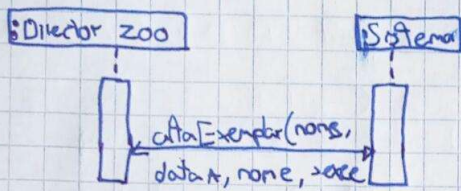 :Director ZOO
:Sistema
altaExemplar(noms,
dataA, nome, sexe